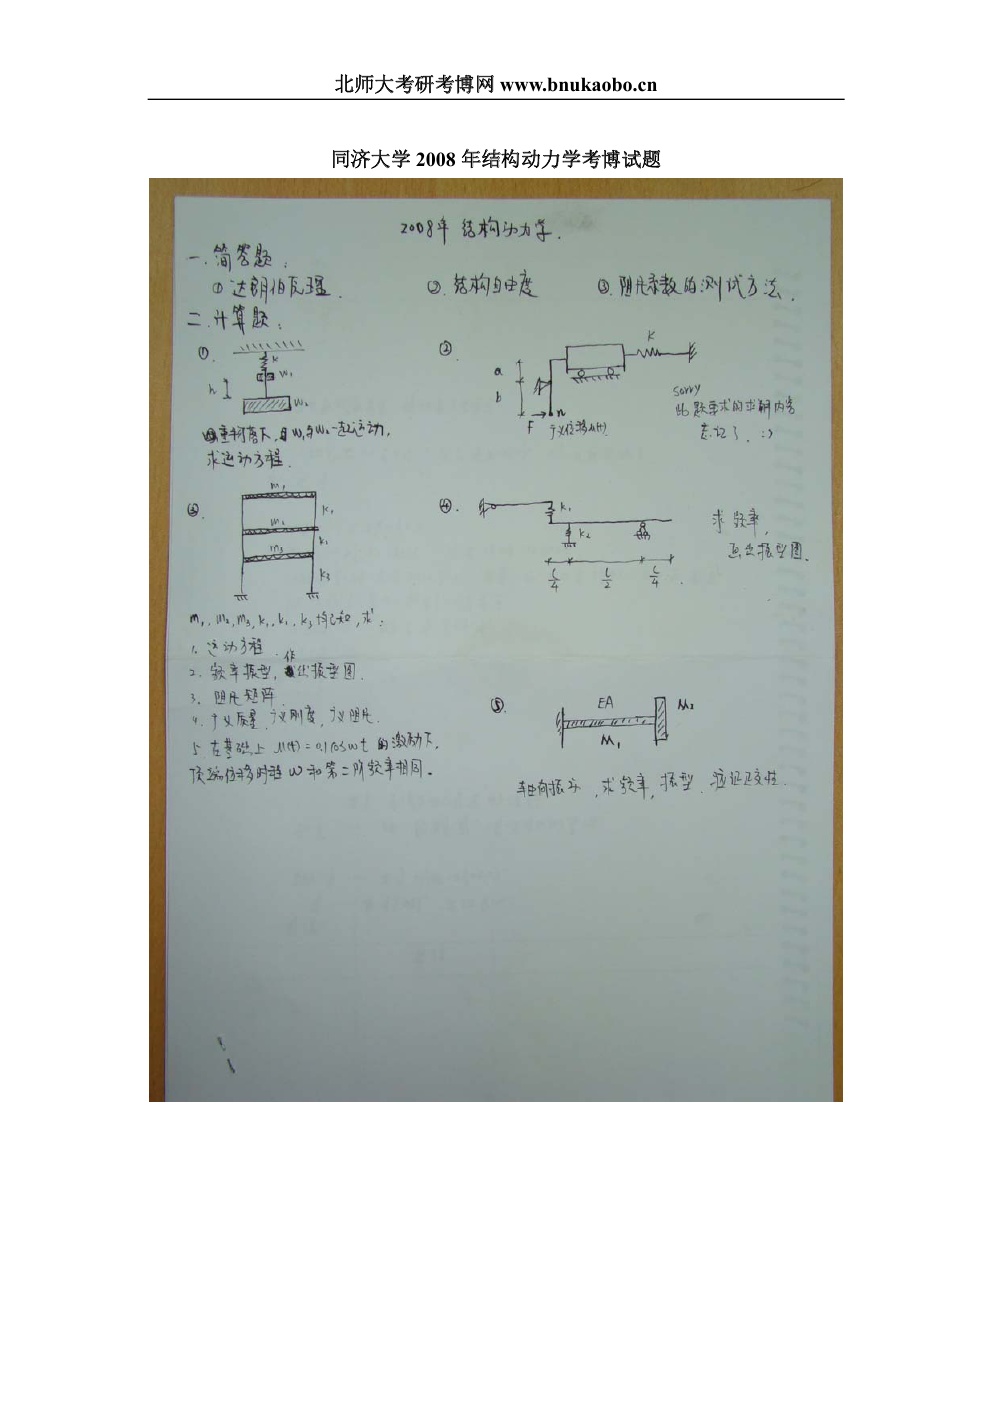 北师大考研考博网 www.bnukaobo.cn
同济大学 2008 年结构动力学考博试题
2008年 结构动力学.
一.简答题:
① 达朗伯原理. ② 结构自由度 ③ 阻尼系数的测试方法.
二.计算题:
①.
K
W1
h
W2
W1与W2一起运动,
求运动方程.
②.
K
a
b
F
广义位移u(t)
sorry
此题要求的求解内容
忘记了. :)
③.
m1
k1
m2
k1
m3
k3
m1, m2, m3, k1, k1, k3 均已知, 求:
1. 运动方程.
2. 频率振型, 作出振型图.
3. 阻尼矩阵
4. 广义质量, 广义刚度, 广义阻尼.
5. 在基础上 u(t)=0.1cosωt 的激励下,
顶端位移时程 ω和第二阶频率相同。
④.
k1
k2
L/4 L/2 L/4
求频率,
画出振型图.
⑤.
EA
M2
M1
轴向振动, 求频率, 振型. 验证正交性.